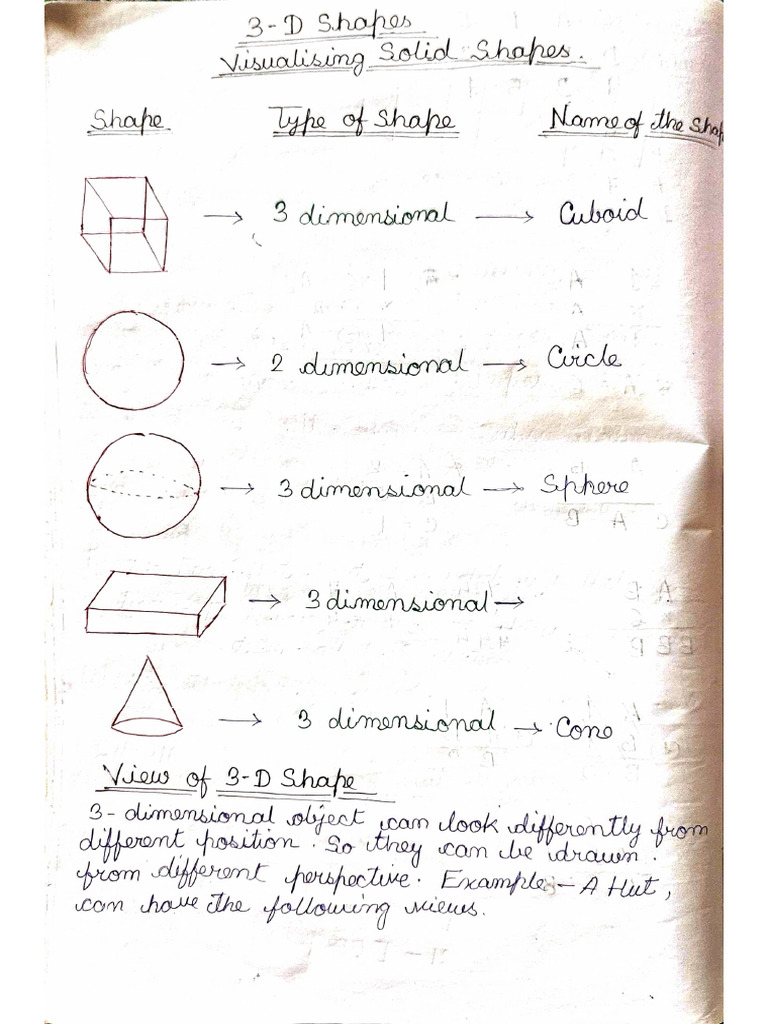 3-D Shapes
Visualising Solid Shapes.
Shape Type of Shape Name of the Shap
→ 3 dimensional → Cuboid
→ 2 dimensional → Circle
→ 3 dimensional → Sphere
→ 3 dimensional →
→ 3 dimensional → Cone
View of 3-D Shape
3-dimensional object can look differently from
different position. So they can be drawn.
from different perspective. Example - A Hut,
can have the following views.